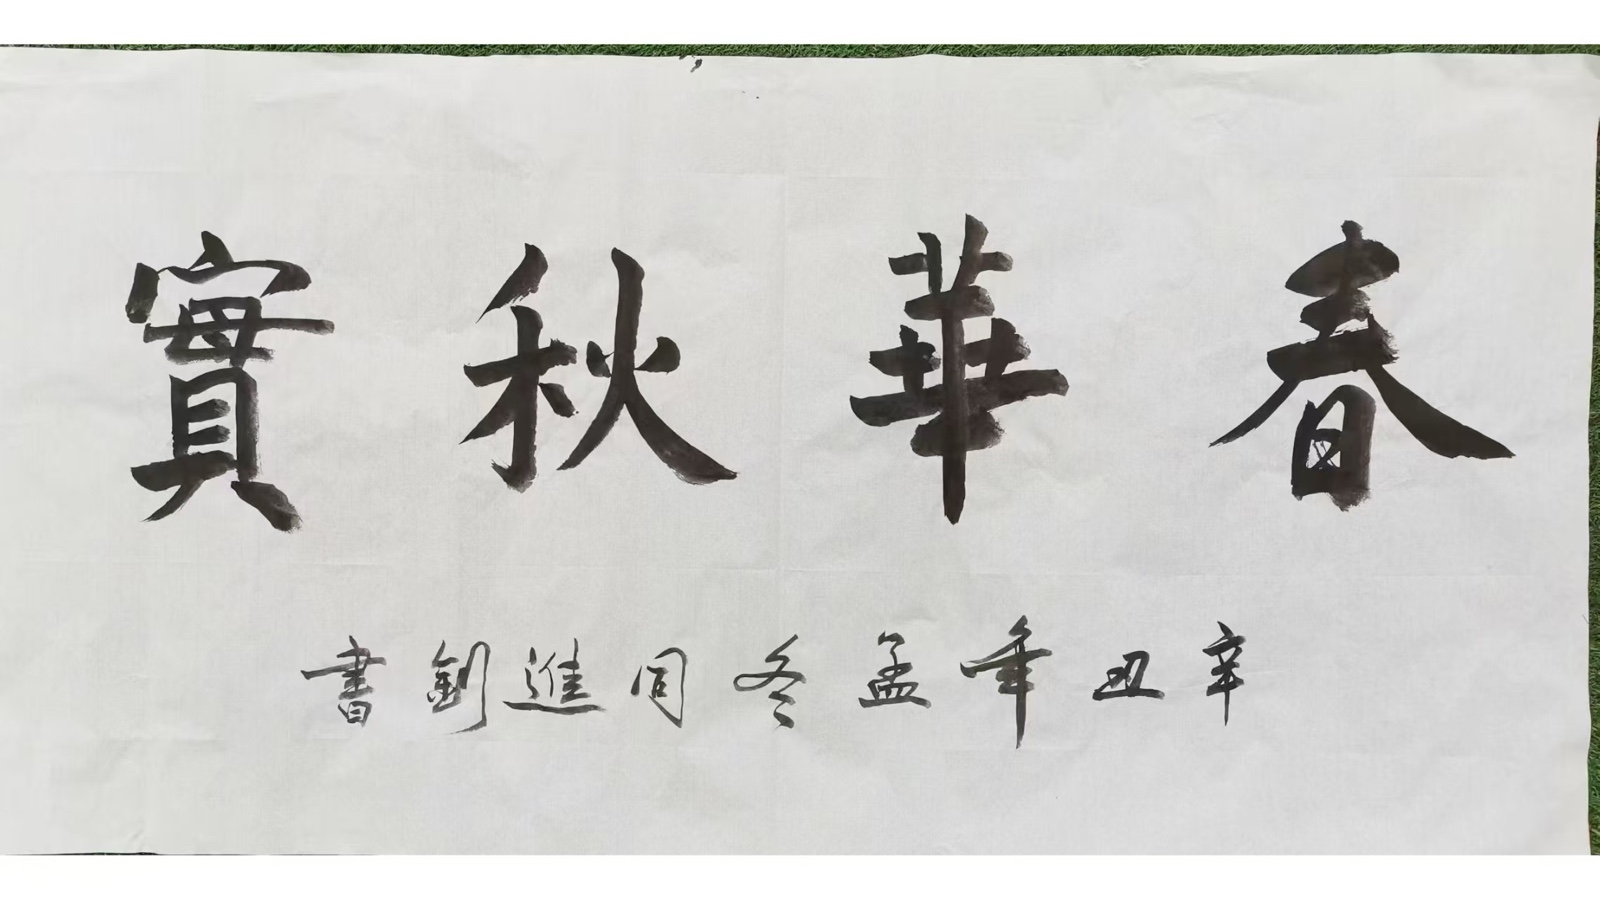 春華秋實
辛丑年孟冬周進釗書